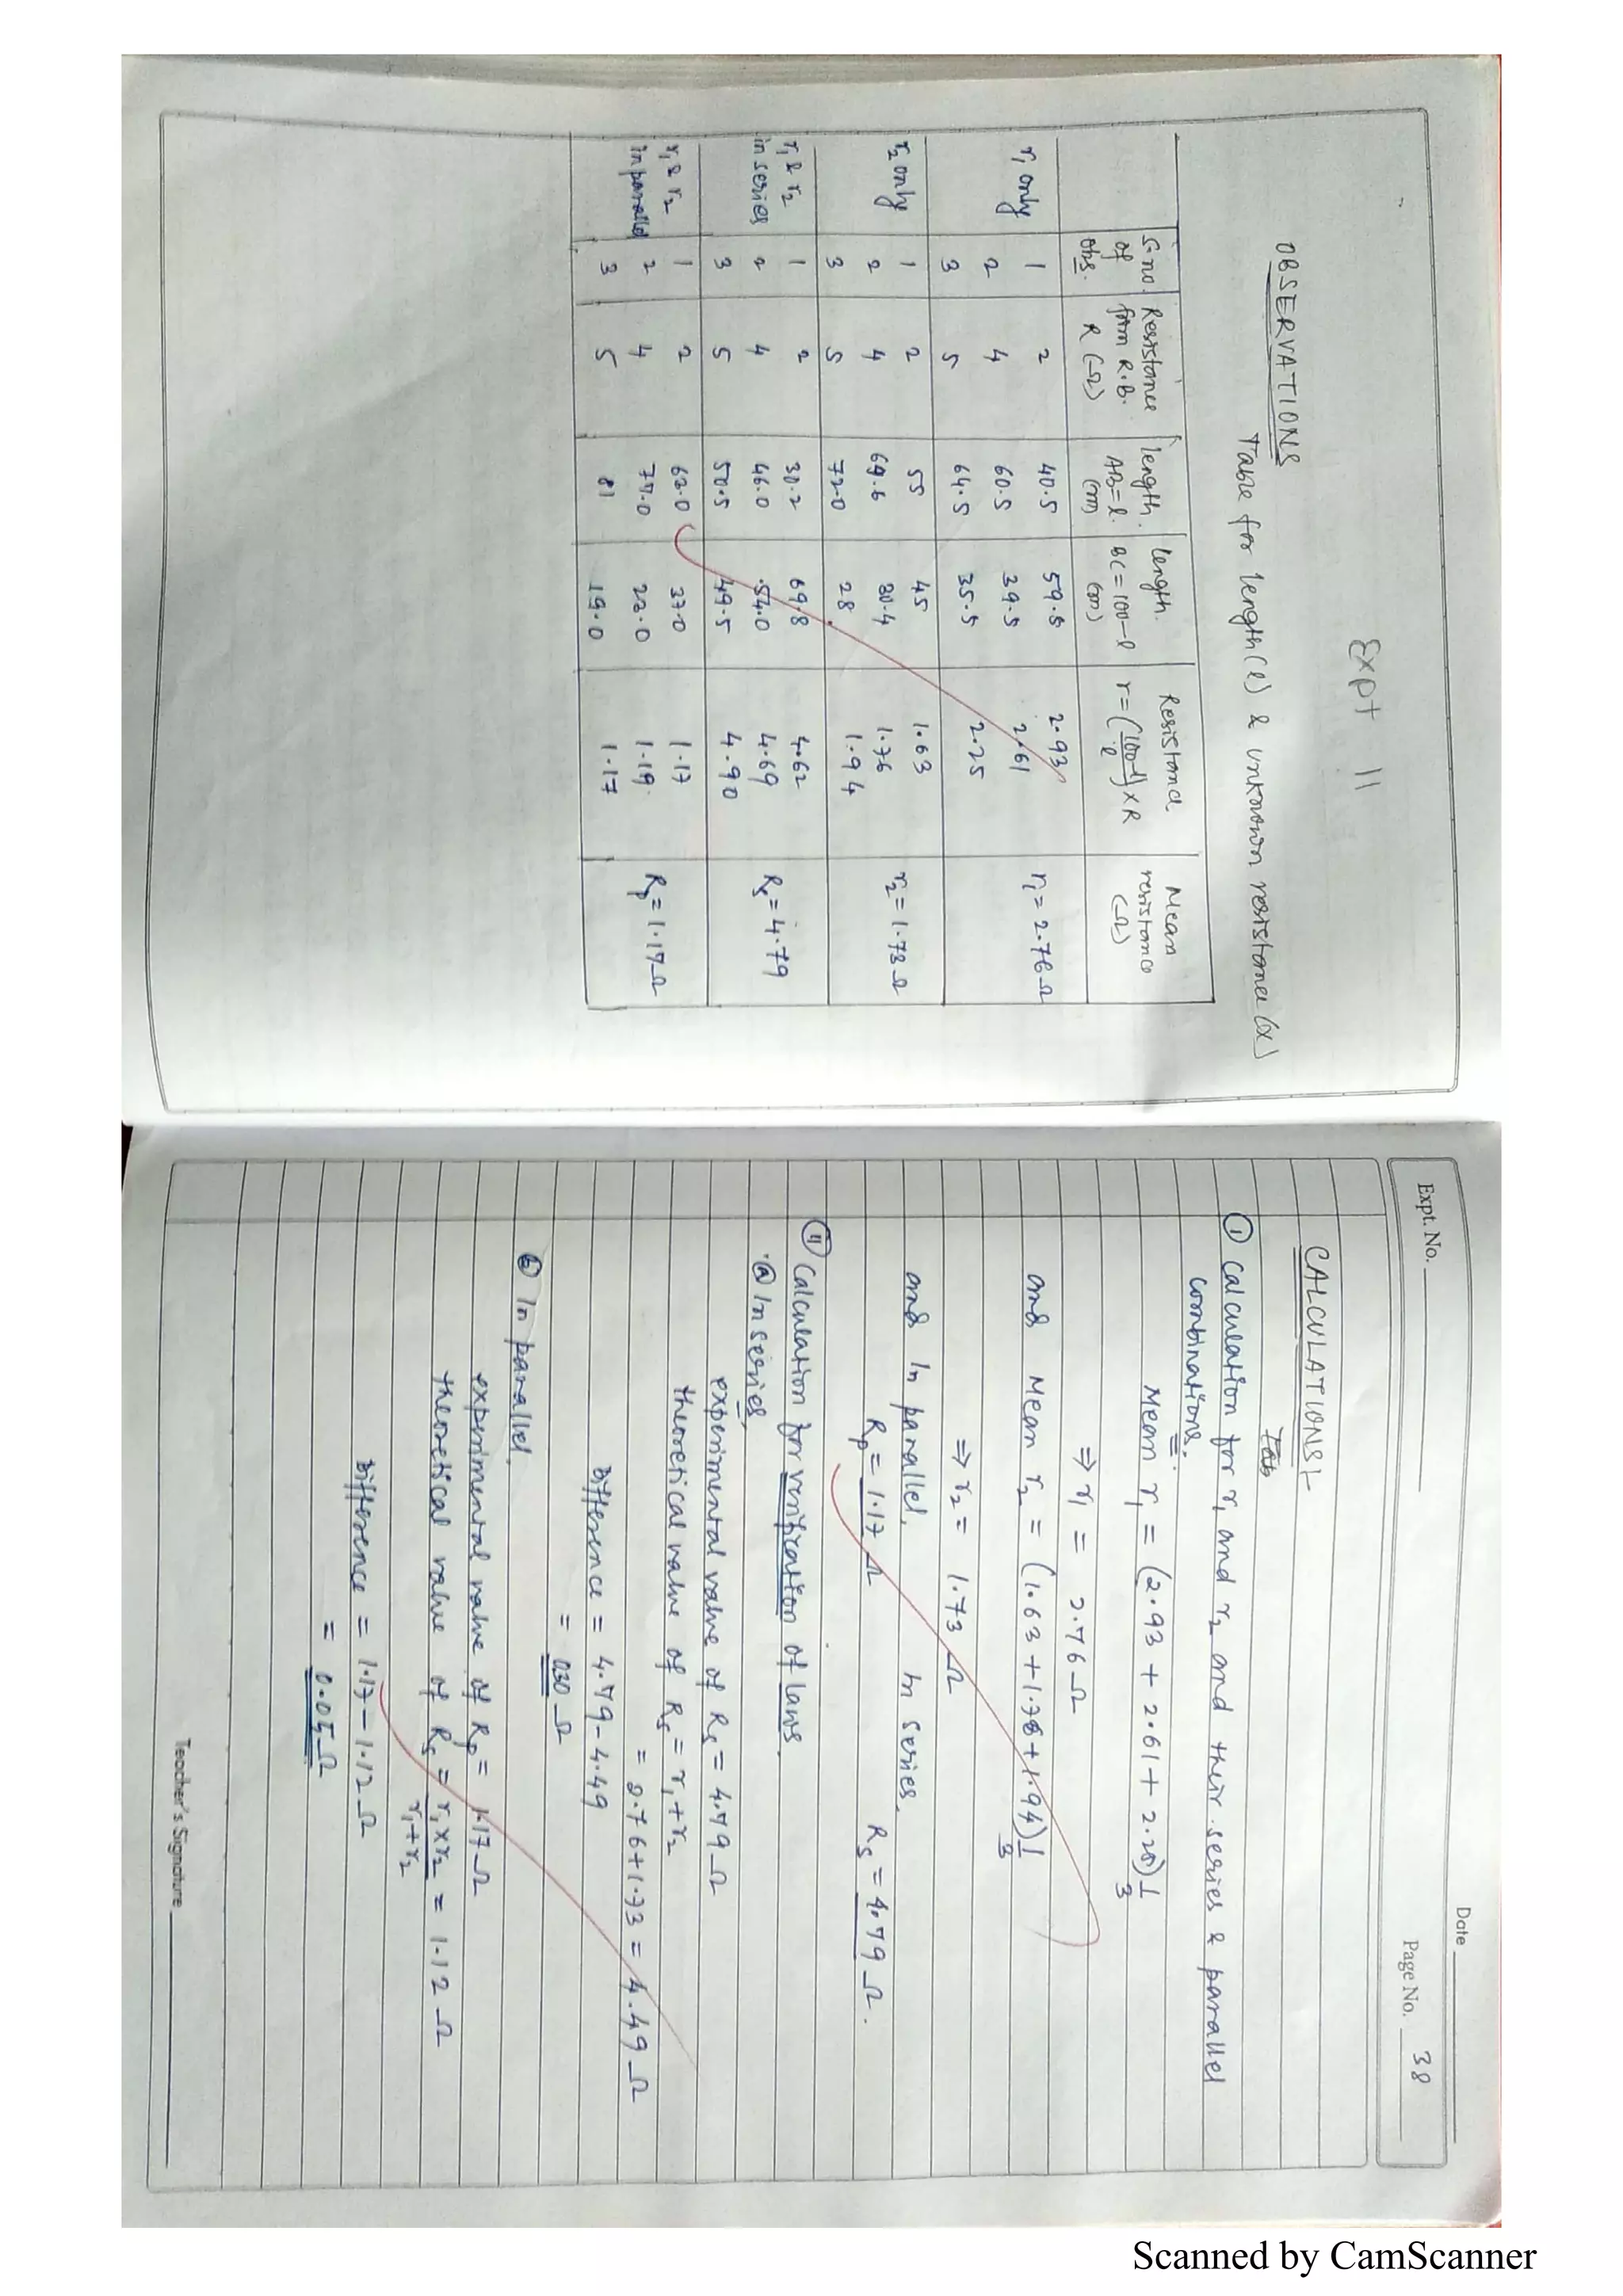 Expt 11
OBSERVATIONS
Table for length (l) & unknown resistance (x)
S.no. of obs. | Resistance from R.B. R (Ω) | length AB = l (cm) | length BC = 100-l (cm) | Resistance r = (100-l/l) x R | Mean resistance (Ω)
r1 only | 1 | 2 | 40.5 | 59.5 | 2.93 | r1 = 2.76 Ω
2 | 4 | 60.5 | 39.5 | 2.61
3 | 5 | 64.5 | 35.5 | 2.75
r2 only | 1 | 2 | 55 | 45 | 1.63 | r2 = 1.73 Ω
2 | 4 | 69.6 | 30.4 | 1.76
3 | 5 | 72.0 | 28 | 1.94
r1 & r2 in series | 1 | 2 | 30.2 | 69.8 | 4.62 | Rs = 4.79
2 | 4 | 46.0 | 54.0 | 4.69
3 | 5 | 50.5 | 49.5 | 4.90
r1 & r2 in parallel | 1 | 2 | 63.0 | 37.0 | 1.17 | Rp = 1.17 Ω
2 | 4 | 77.0 | 23.0 | 1.19
3 | 5 | 81 | 19.0 | 1.17
Date
Expt. No.
Page No. 38
CALCULATIONS:-
Tab
① Calculation for r1 and r2 and their series & parallel
combinations.
Mean r1 = (2.93 + 2.61 + 2.75) 1/3
⇒ r1 = 2.76 Ω
and Mean r2 = (1.63 + 1.76 + 1.94) 1/3
⇒ r2 = 1.73 Ω
and In parallel, In series,
Rp = 1.17 Ω Rs = 4.79 Ω.
② Calculation for verification of laws.
ⓐ In series,
experimental value of Rs = 4.79 Ω
theoretical value of Rs = r1 + r2
= 2.76 + 1.73 = 4.49 Ω
Difference = 4.79 - 4.49
= 0.30 Ω
ⓑ In parallel,
experimental value of Rp = 1.17 Ω
theoretical value of Rs = r1 x r2 / r1 + r2 = 1.12 Ω
Difference = 1.17 - 1.12 Ω
= 0.05 Ω
Teacher's Signature
Scanned by CamScanner